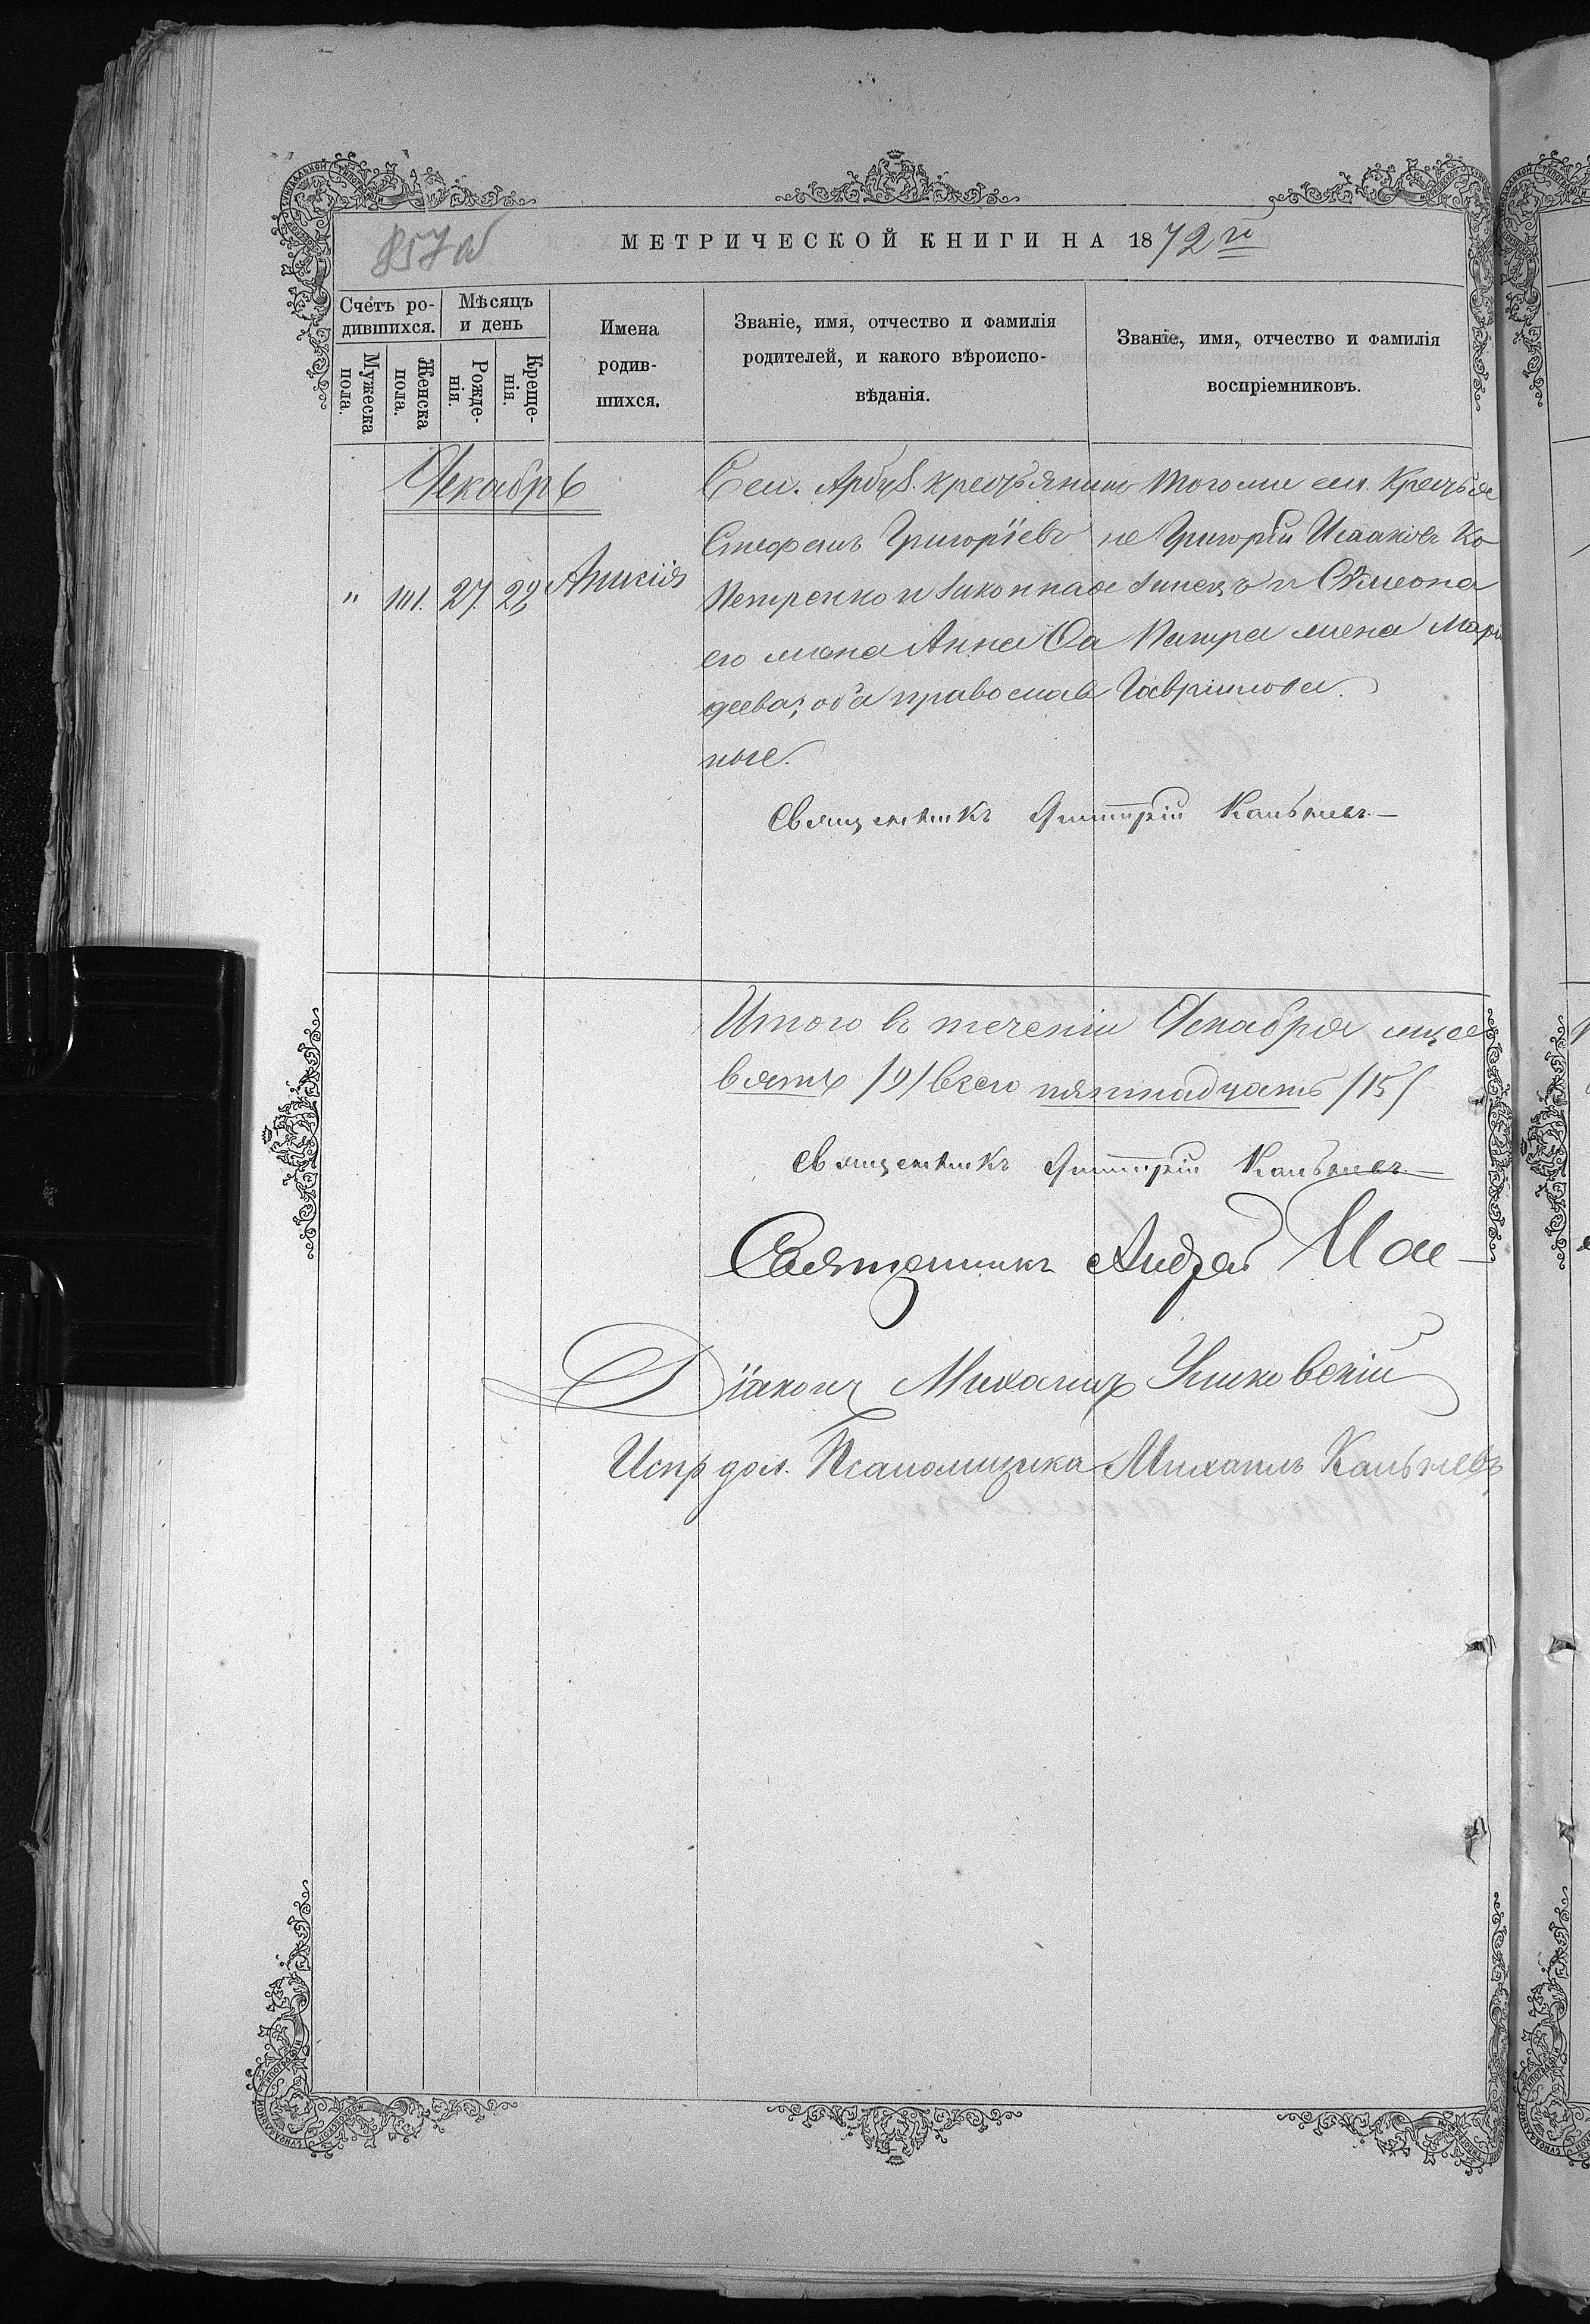 МЕТРИЧЕСКОЙ КНИГИ НА 1872 й
Счетъ ро-
дившихся.
Мѣсяцъ
и день
Мужеска
пола.
Женска
пола.
Рожде-
нія.
Креще-
нія.
Имена
родив-
шихся.
Званіе, имя, отчество и фамилія
родителей, и какого вѣроиспо-
вѣданія.
Званіе, имя, отчество и фамилія
воспріемниковъ.
Декабрь
" 101. 27. 28. Анисія
Сел. Арбуз. крестьянинъ
Стефанъ Григоріевъ
Петренко и законная
его жена Анна Ѳа
деева; оба православ
ные.
Тогоже сел. Крестья
не Григорій Исааковъ Ко
и Симеона
Петра жена Марія
Гавріилова.
Священникъ Димитрій
Итого въ теченіи Декабря
/9/ всего пятнадцать /15/
Священникъ Димитрій
Священникъ Андрей
Діаконъ Михаилъ
Испр дол. Псаломщика Михаилъ